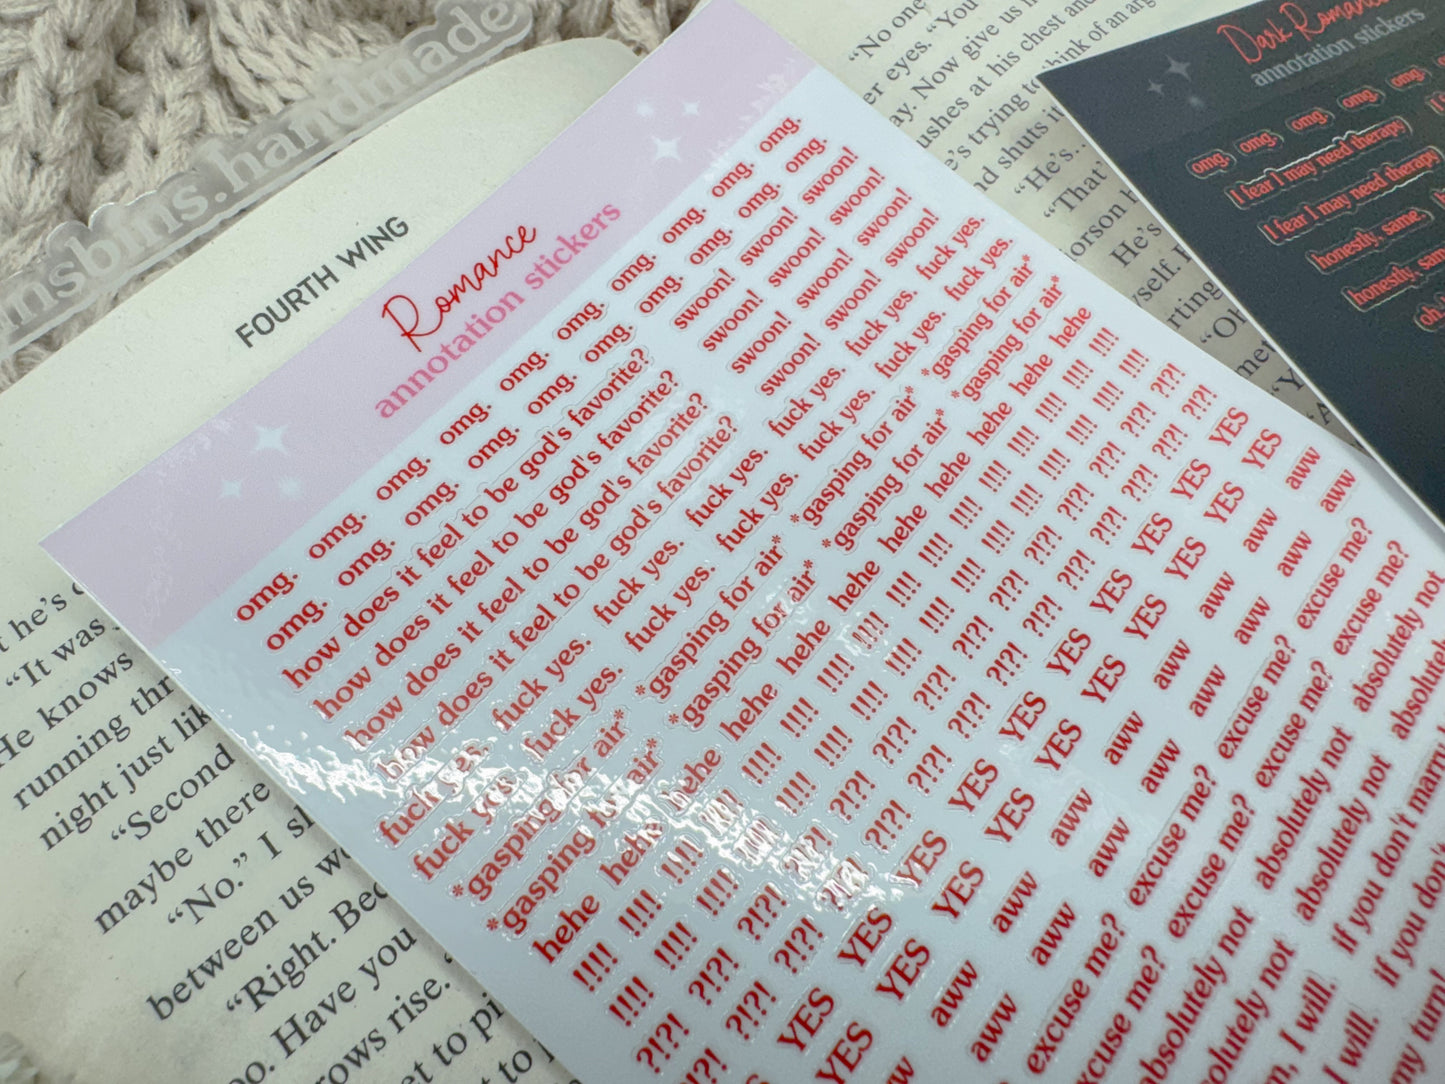 nsbins.handmade
FOURTH WING
Romance
annotation stickers
omg. omg. omg. omg. omg. omg. omg. omg. omg. omg.
omg. omg. omg. omg. omg. omg. omg. omg. omg. omg.
how does it feel to be god's favorite? swoon! swoon! swoon!
how does it feel to be god's favorite? swoon! swoon! swoon!
how does it feel to be god's favorite? swoon! swoon! swoon!
how does it feel to be god's favorite? swoon! swoon! swoon!
fuck yes. fuck yes. fuck yes. fuck yes. fuck yes. fuck yes.
fuck yes. fuck yes. fuck yes. fuck yes. fuck yes. fuck yes.
*gasping for air* *gasping for air* *gasping for air* *gasping for air*
*gasping for air* *gasping for air* *gasping for air* *gasping for air*
hehe hehe hehe hehe hehe hehe hehe hehe hehe hehe
!!!! !!!! !!!! !!!! !!!! !!!! !!!! !!!! !!!!
!!!! !!!! !!!! !!!! !!!! !!!! !!!! !!!! !!!!
?!?! ?!?! ?!?! ?!?! ?!?! ?!?! ?!?! ?!?!
?!?! ?!?! ?!?! ?!?! ?!?! ?!?! ?!?! ?!?!
YES YES YES YES YES YES YES YES
YES YES YES YES YES YES YES YES
aww aww aww aww aww aww aww
aww aww aww aww aww aww aww
excuse me? excuse me? excuse me? excuse me?
excuse me? excuse me? excuse me? excuse me?
absolutely not absolutely not absolutely not
absolutely not absolutely not absolutely
I will. if you don't marry
I will. if you don't
my turn
Dark Romance
annotation stickers
omg. omg. omg. omg. omg.
I fear I may need therapy
I fear I may need therapy
honestly, same.
honestly, same
oh
“No one
er eyes. “You
ay. Now give us
ushes at his chest and
e's trying to think of an
nd shuts it
“He's
“That'
orson
He's
yself.
rting
“Oh
t he's
“It was
He knows
running thr
night just lik
“Second
maybe there
“No.” I sl
between us
“Right. Bec
o. Have you
rows rise.
et to pi
t to